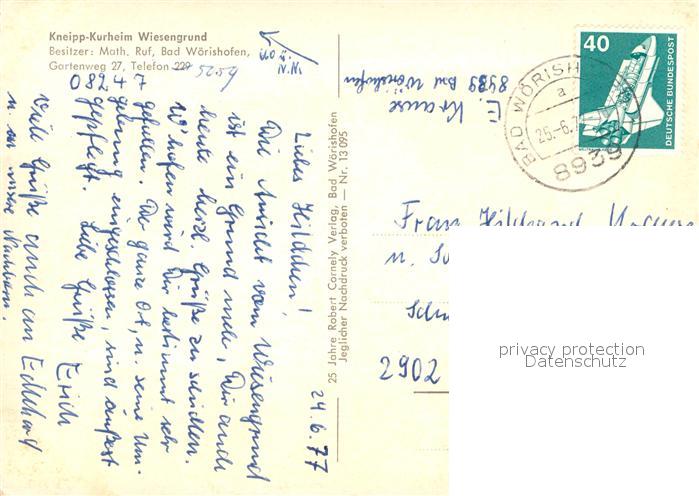 Kneipp-Kurheim Wiesengrund
Besitzer: Math. Ruf, Bad Wörishofen,
Gartenweg 27, Telefon 229 5259
08247
24.6.77
Liebes Hildchen!
Die Ansicht vom Wiesengrund
ist ein Grund mehr, Dir auch
heute herzl. Grüße zu schicken.
W'hofen wird Dir bestimmt sehr
gefallen. Der ganze Ort, u. seine Um-
gebung eingeschlossen, sind äußerst
gepflegt. Liebe Grüße Erich
Viele Grüße auch an Eckhard
u. an unsere Nachbarn.
25 Jahre Robert Cornely Verlag, Bad Wörishofen
Jeglicher Nachdruck verboten — Nr. 13 095
E. Krause
8939 Bad Wörishofen
40
DEUTSCHE BUNDESPOST
BAD WÖRISH
a
25.-6.7
8939
Frau Hildegard Krause
u.
2902
privacy protection
Datenschutz